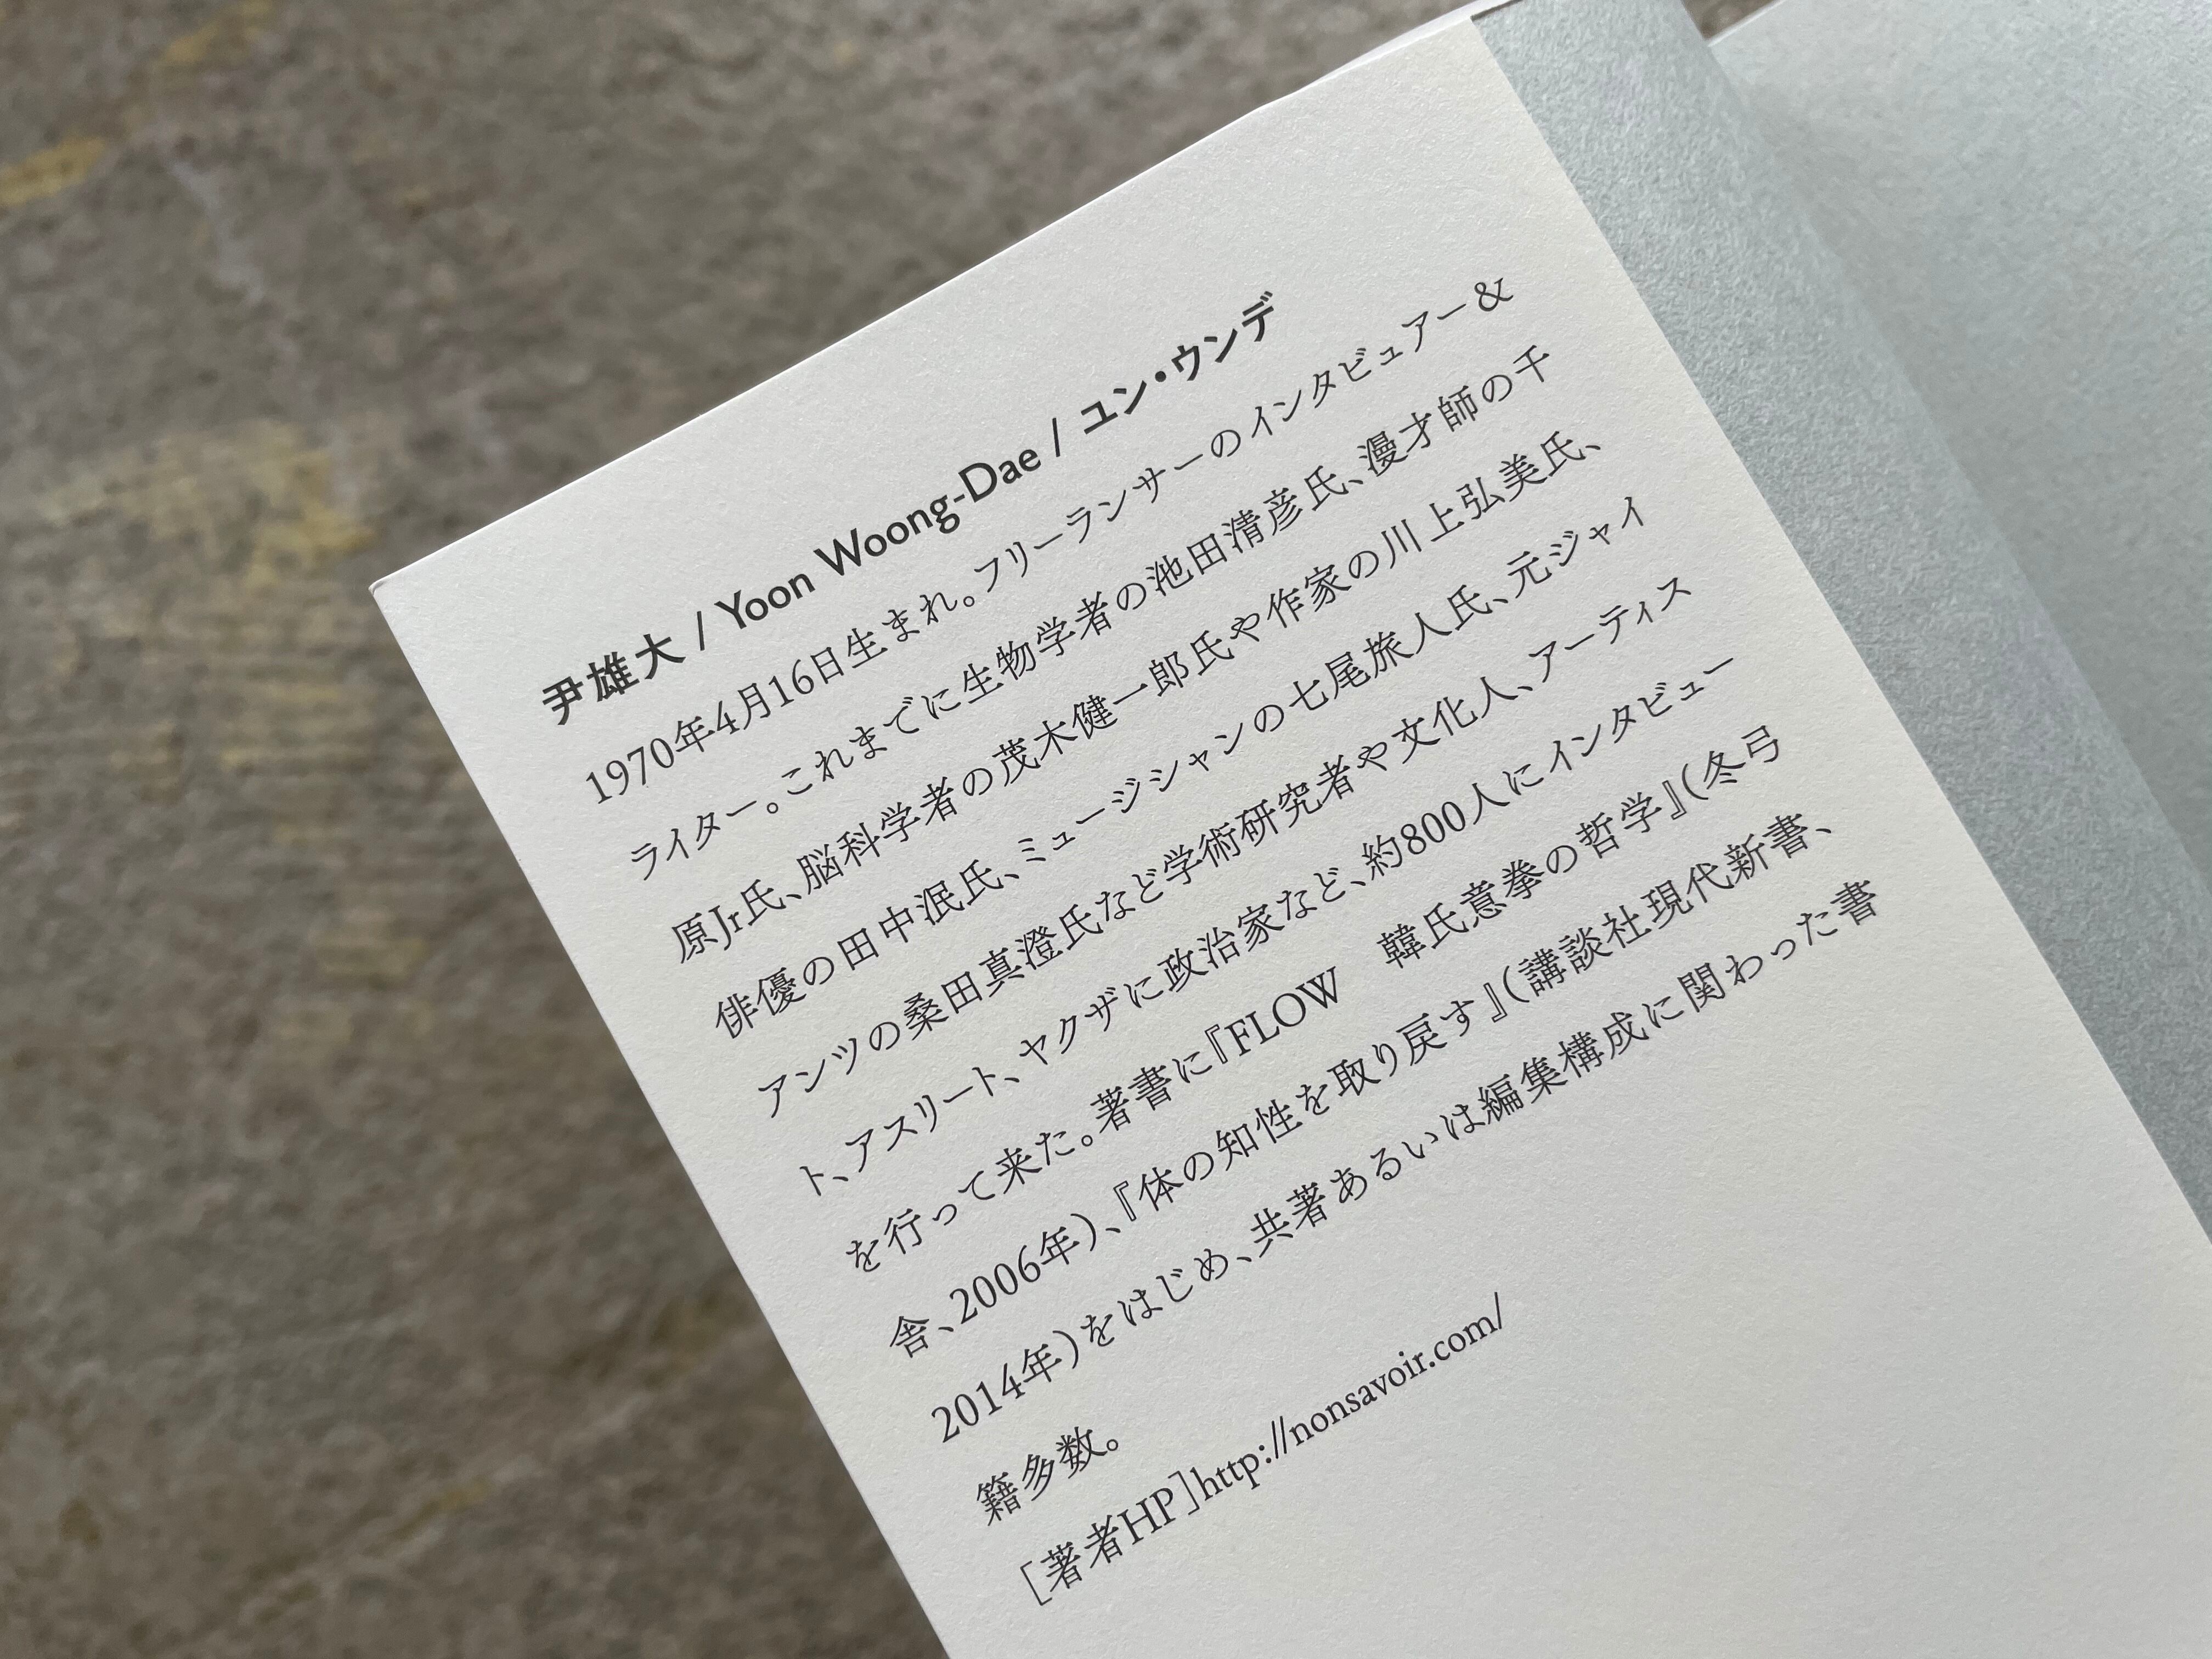 尹雄大 / Yoon Woong-Dae / ユン・ウンデ
1970年4月16日生まれ。フリーランサーのインタビュアー＆
ライター。これまでに生物学者の池田清彦氏、漫才師の千
原Jr氏、脳科学者の茂木健一郎氏や作家の川上弘美氏、
俳優の田中泯氏、ミュージシャンの七尾旅人氏、元ジャイ
アンツの桑田真澄氏など学術研究者や文化人、アーティス
ト、アスリート、ヤクザに政治家など、約800人にインタビュー
を行って来た。著書に『FLOW　韓氏意拳の哲学』（冬弓
舎、2006年）、『体の知性を取り戻す』（講談社現代新書、
2014年）をはじめ、共著あるいは編集構成に関わった書
籍多数。
［著者HP］http://nonsavoir.com/